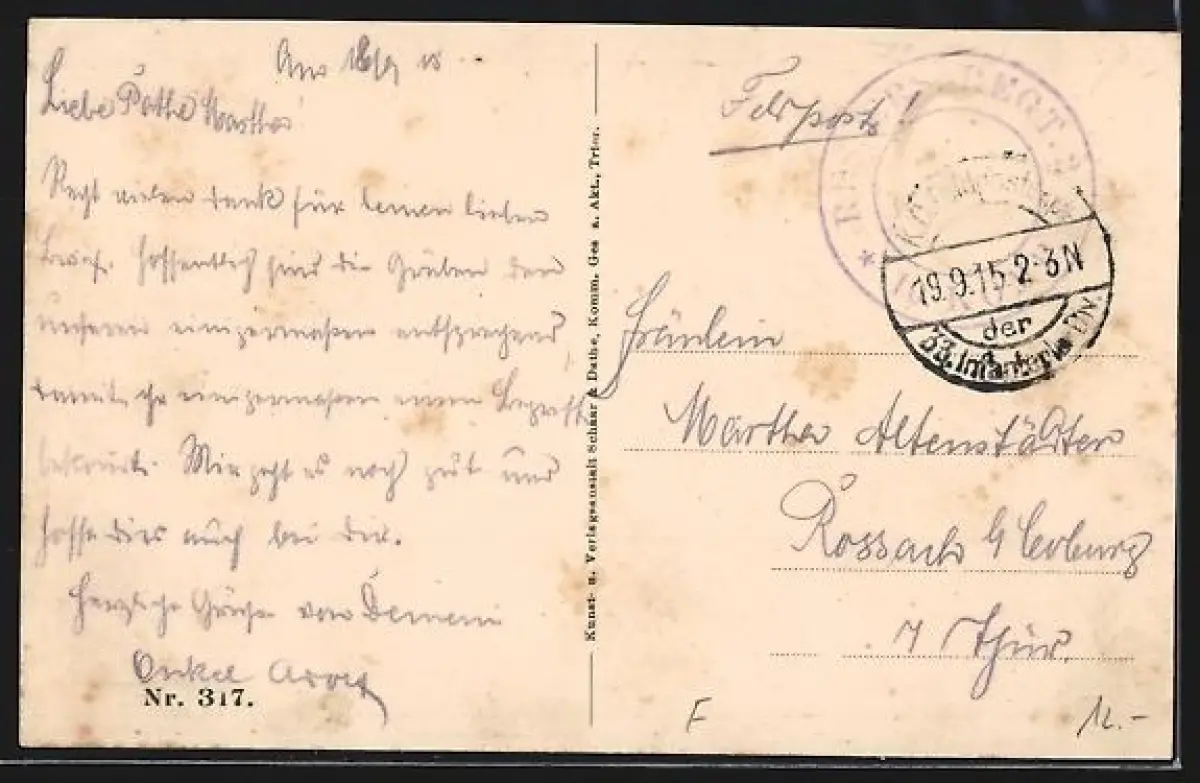 Liebe Pathe Martha
Recht vielen Dank für deinen lieben
Brief. Hoffentlich sind die Gräben den
unseren einigermaßen entsprechend,
damit ihr einigermaßen einen Begriff
bekommt. Mir geht es noch gut und
hoffe dies auch bei dir.
Herzliche Grüße von Deinem
Onkel
Nr. 317.
Kunst- u. Verlagsanstalt Schaar & Dathe, Komm. Ges a. Akt., Trier.
Feldpost!
REGT.
19.9.15 2-3N
der
33. Infanterie-Div.
Fräulein
Martha Altenstädter
Rossach b/ Coburg
i/ Thür.
F
12.-